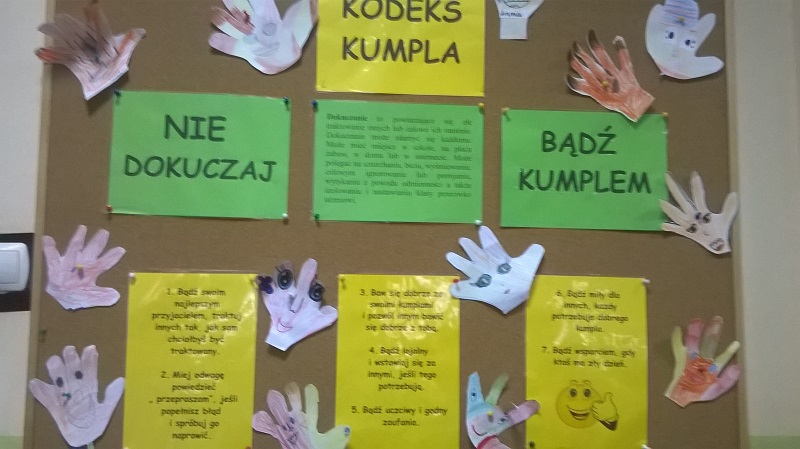 KODEKS
KUMPLA
NIE
DOKUCZAJ
Dokuczanie to powtarzające się złe
traktowanie innych lub celowe ich ranienie.
Dokuczanie może zdarzyć się każdemu.
Może mieć miejsce w szkole, na placu
zabaw, w domu lub w internecie. Może
polegać na szturchaniu, biciu, wyśmiewaniu,
celowym ignorowaniu lub pomijaniu,
wytykaniu z powodu odmienności a także
izolowaniu i nastawianiu klasy przeciwko
BĄDŹ
KUMPLEM
1. Bądź swoim
najlepszym
przyjacielem, traktuj
innych tak, jak sam
chciałbyś być
traktowany.
2. Miej odwagę
powiedzieć
„przepraszam", jeśli
popełnisz błąd
i spróbuj go
naprawić.
3. Baw się dobrze ze
swoimi kumplami
i pozwól innym bawić
się dobrze z tobą.
4. Bądź lojalny
i wstawiaj się za
innymi, jeśli tego
potrzebują.
5. Bądź uczciwy i godny
zaufania.
6. Bądź miły dla
innych, każdy
potrzebuje dobrego
kumpla.
7. Bądź wsparciem, gdy
ktoś ma zły dzień.